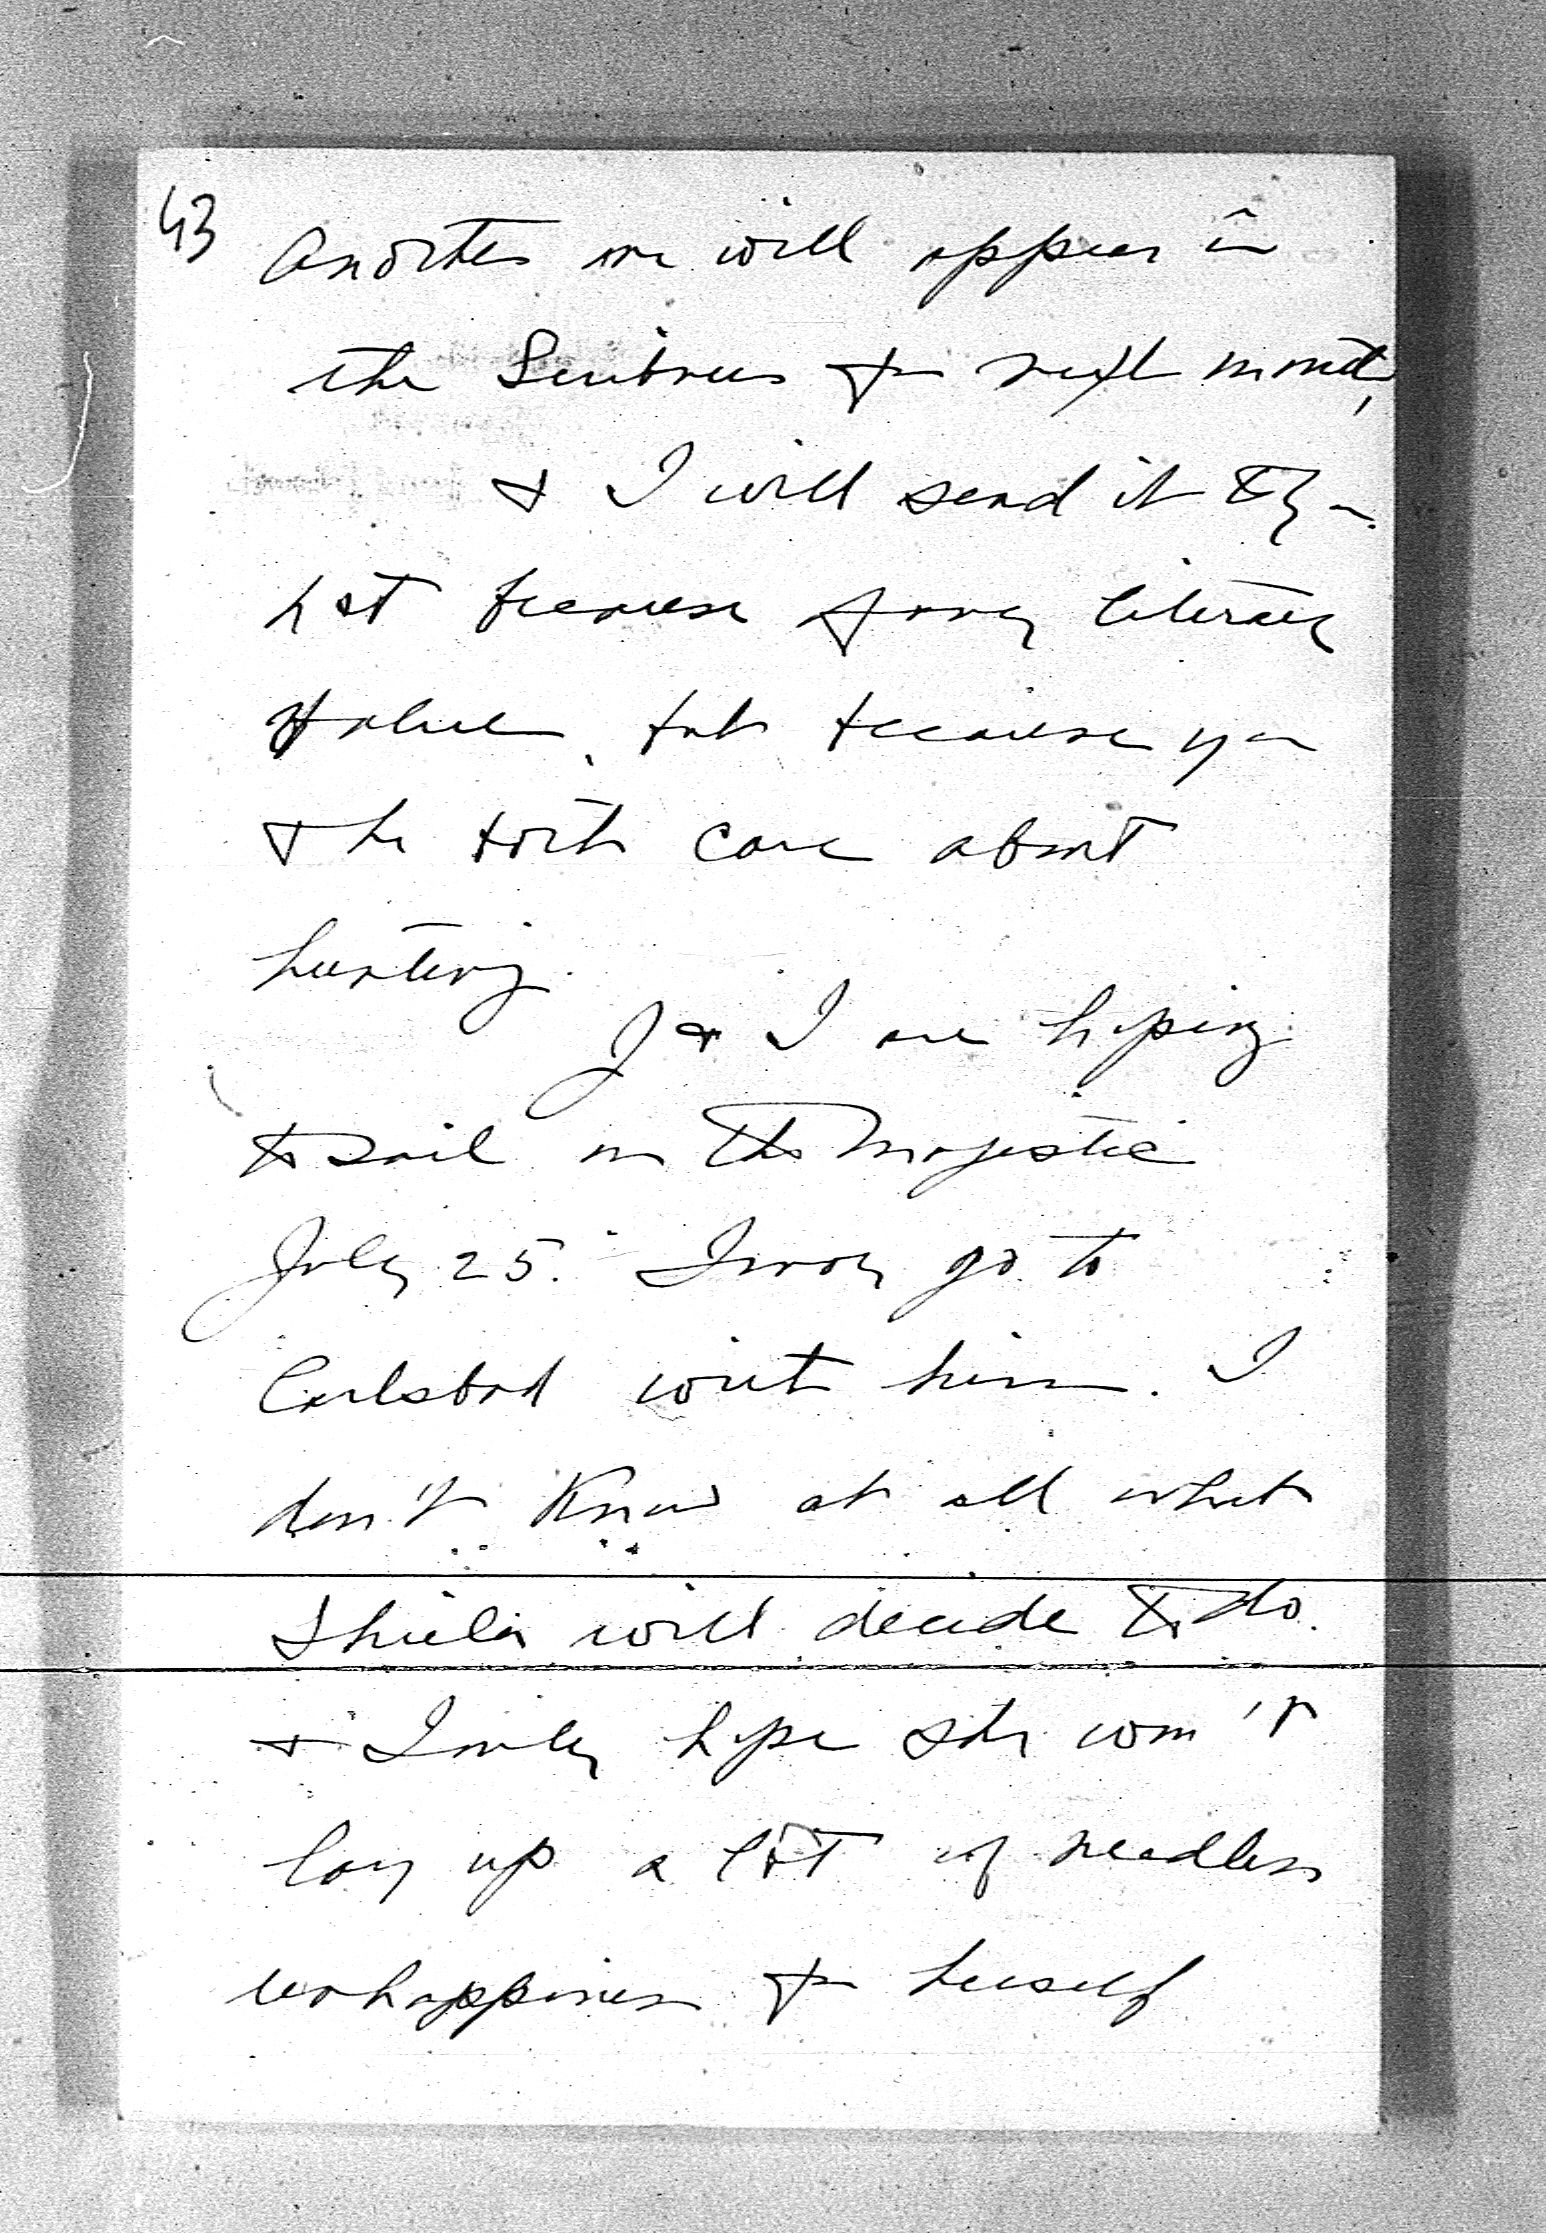 43
Another one will appear in
the Scribners for next month,
& I will send it to you
not because of any literary
value, but because you
& he both care about
hunting.
J & I are hoping
to sail on the Majestic
July 25. I may go to
Carlsbad with him. I
don't know at all what
Shiela will decide to do.
& I only hope she won't
lay up a lot of needless
unhappiness for herself